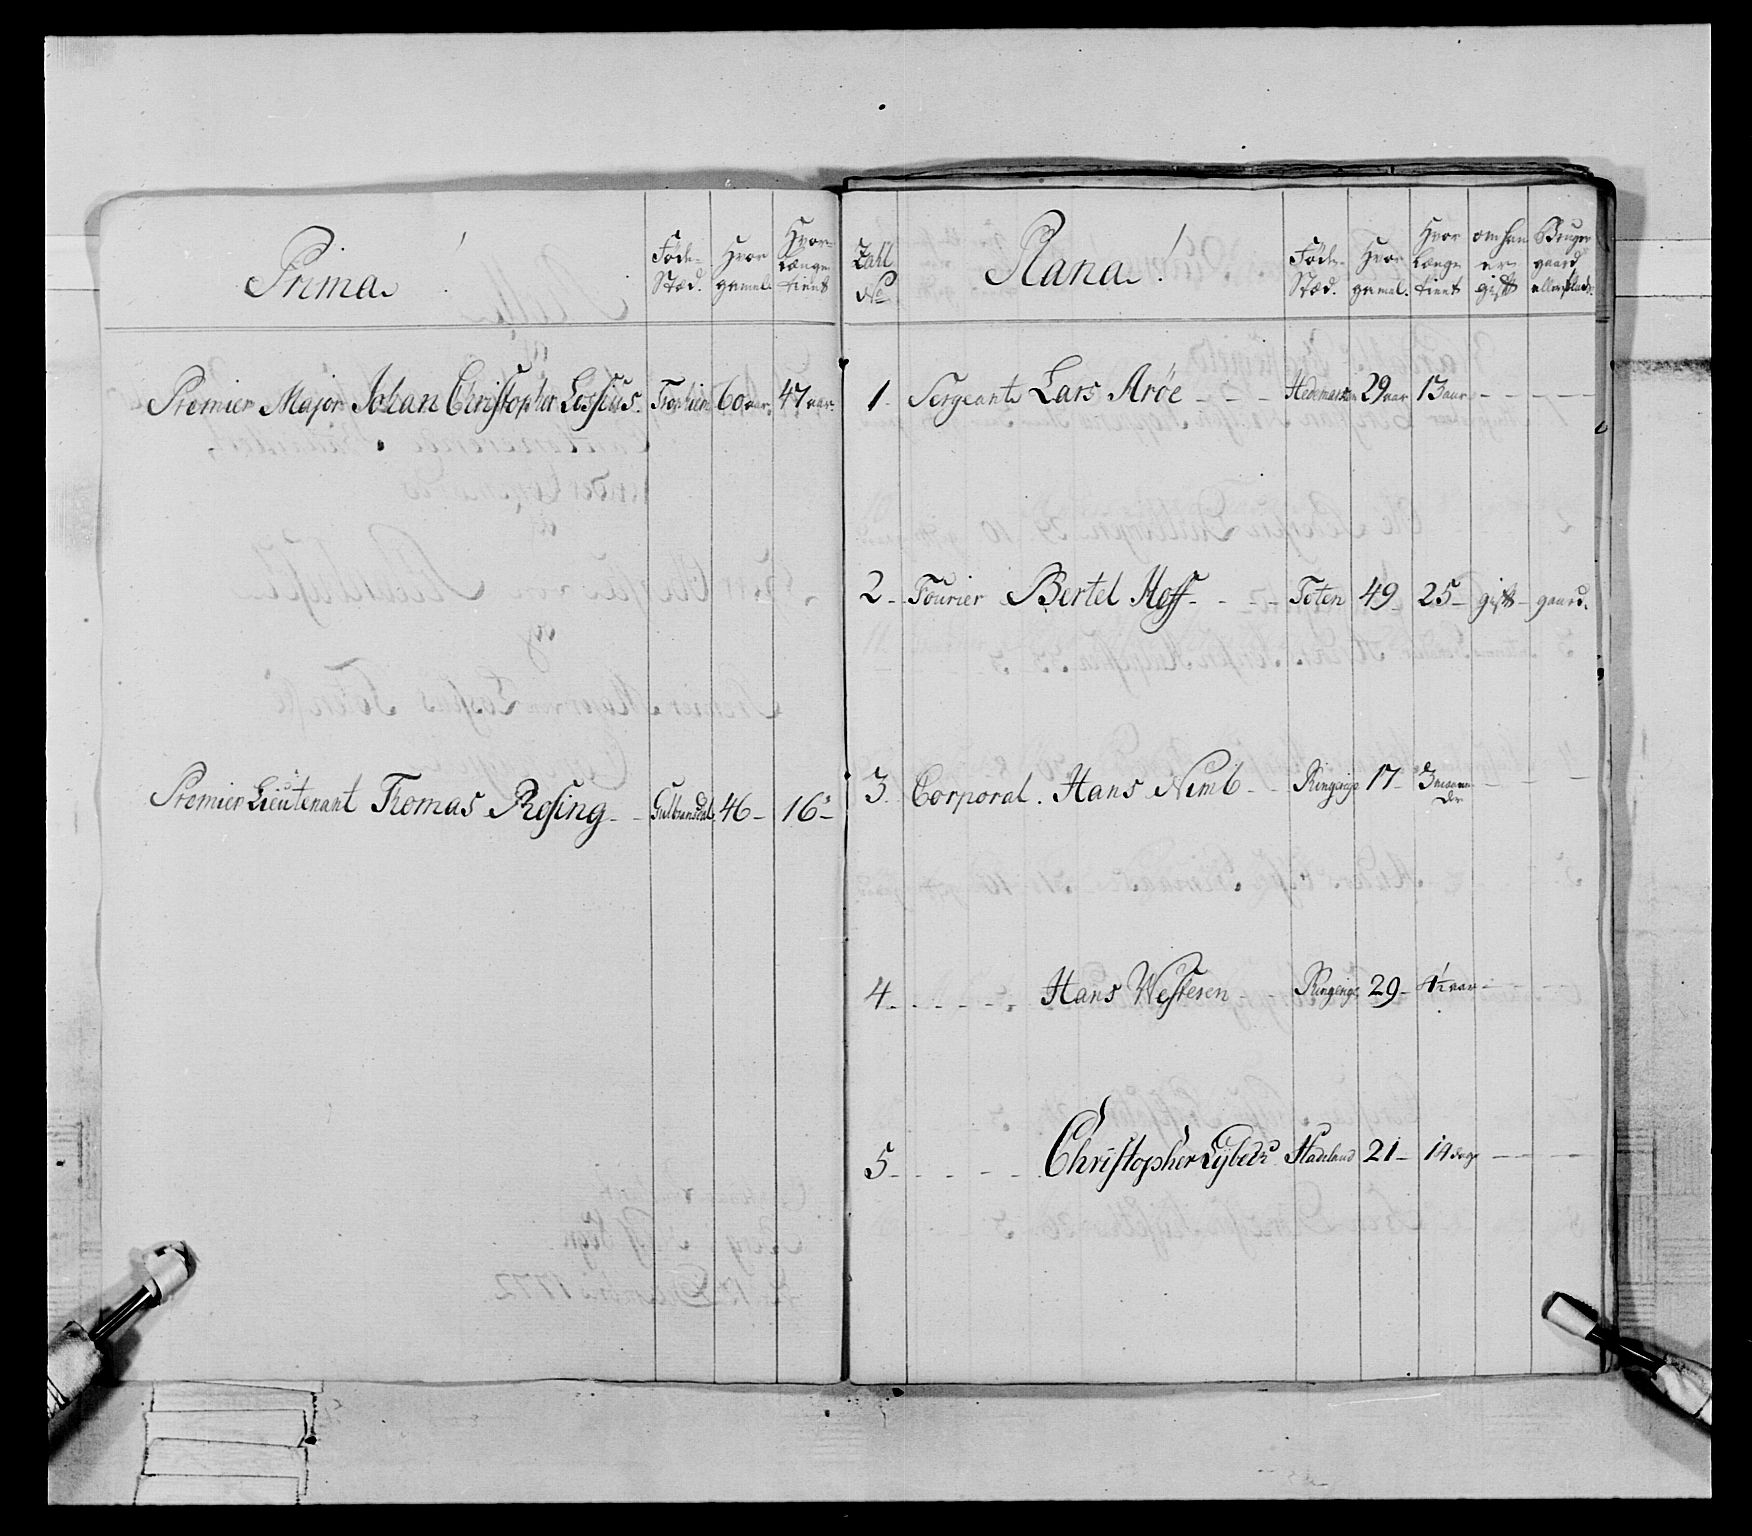 Prima.
Føde-
Stæd.
Hvor
gamel.
Hvor-
Længe
tient
Premier Major Johan Christopher Lossius. 60 aar. 47 aar.
Premier Lieutenant Thomas Rosing - Gulbransdal. 46 - 16 -
Zahl
No
Plana.
Føde-
Stæd.
Hvor
gamel.
Hvor
Længe
tient
om han
er
gift
Bruger
gaard
eller Plads.
1 - Sergeant Lars Arøe - - - Hedemarken 29 aar 13 aar - - - -
2 - Fourier Bertel Hoff - - - Toten 49 - 25 - gift - gaard.
3. Corporal. Hans Nimb - - Ringerige 17 - 3 maane-
der
4 - - - - - Hans Westeren - - Ringerige 29 - 1½ aar - -
5 - - - - - Christopher Lybeck Hadeland 21 - 14 dage - - -